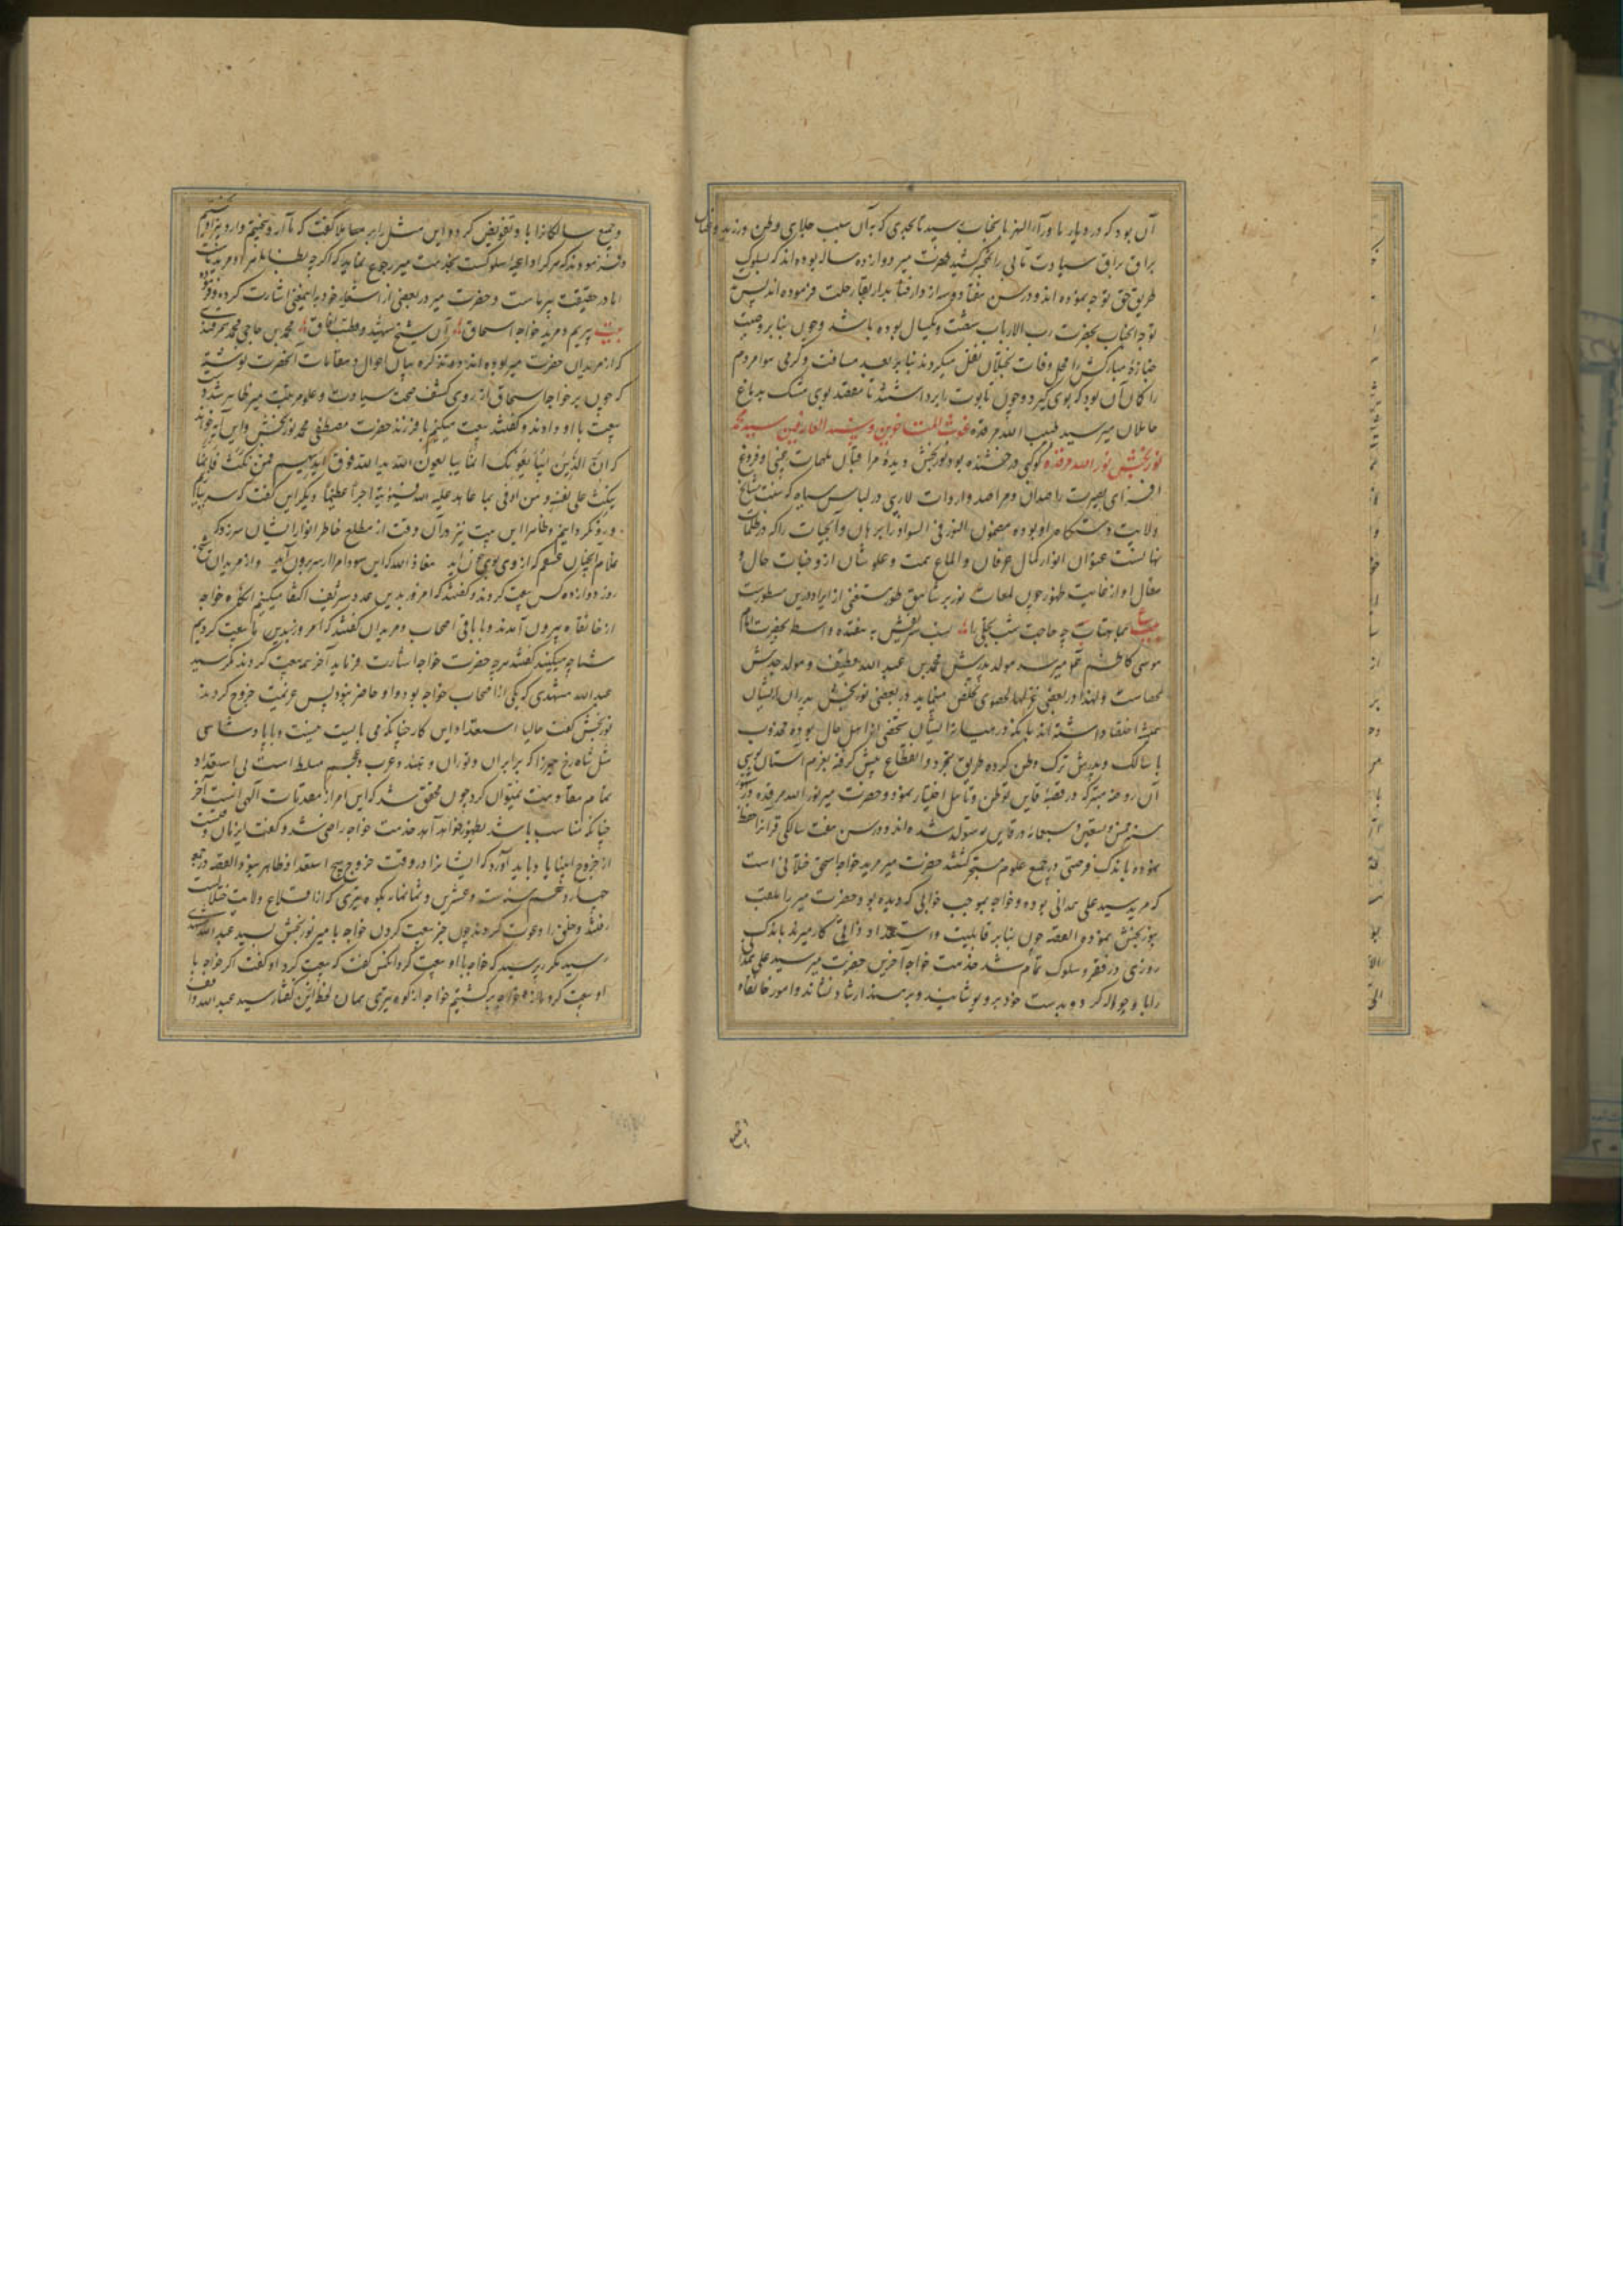 آن بود که در دیار ماوراءالنهر با نجناب سید تا بحدی که بآن سبب جلای وطن ورزیده و عنان
براق براق سیادت مآبی را کشید حضرت میر دوازده ساله بوده‌اند که بسلوک
طریق حق توجه نموده اند و در سن هفتاد و سه از دار فنا بدار بقا رحلت فرموده اند پس
توجه انجناب بحضرت رب الارباب شصت و یکسال بوده باشد و چون بنابر وصیت
جنازه مبارکش را از محل وفات بختلان نقل میکردند بنابر بعد مسافت و گرمی هوا مردم
را گمان آن بود که بوی گیرد و چون تابوت را برداشتند تا مقصد بوی مشک بدماغ
حاملان میرسید طیب الله مرقده غوث المتاخرین و سند العارفین سید محمد
نوربخش نور الله مرقده کوکبی درخشنده بود نوربخش دیده مراقبان ملهمات غیبی و فروغ
افزای بصیرت راصدان مراصد واردات لاریبی در لباس سیاه که سنت مشایخ
ولایت دستگاه او بوده مضمون النور فی السواد را برهان و آب حیات را که در ظلمات
نهانست عنوان انوار کمال عرفان و الماع همت و علو شان از وجنات حال و
مقال او از غایت ظهور چون لمعات نور بر شاهق طور مستغنی از ایراد در این سطورست
مصرع بماهتاب چه حاجت شب تجلی را نسب شریفش به هفده واسطه بحضرت امام
موسی کاظم ع میرسد مولد پدرش محمد بن عبد الله قطیف و مولد جدش
لحصاست و لهذا در بعضی غزلها لحصوی تخلص مینماید و در بعضی نوربخش پدران ایشان
همیشه اعتقاد داشته اند بآنکه در میانه ایشان شخصی از اهل حال بوده مجذوب
یا سالک و پدرش ترک وطن کرده طریق تجرد و انقطاع پیش گرفته بعزم آستان بوسی
آن روضه متبرکه در قصبه قاین توطن و تاهل اختیار نموده و حضرت میر نور الله مرقده در شهور
سنه خمس و تسعین و سبعمائه در قاین متولد شده اند و در سن هفت سالگی قرآن را حفظ
نموده باندک فرصتی در جمیع علوم متبحر گشتند حضرت میر مرید خواجه اسحق ختلانی است
که مرید سید علی همدانی بوده و خواجه بموجب خوابی که دیده بود حضرت میر را ملقب
بنوربخش نموده القصه چون بنابر قابلیت و استعداد ذاتی کار میر باندک
روزی در فقر و سلوک تمام شد خدمت خواجه آخرین حضرت میر سید علی همدانی
را با و حواله کرد و بدست خود برو پوشانید و بر مسند ارشاد نشاند و امور خانقاه
و جمیع سالکانرا باو تفویض کرد و این مثل را بر معاملا گفت که ما آرد بیختیم و آرد بیز آویختیم
و فرمودند که هر کرا داعیه سلوکست بخدمت میر رجوع نماید که اگرچه بظاهر او مرید ماست
اما در حقیقت پیر ماست و حضرت میر در بعضی از اشعار خود باینمعنی اشارت کرده و فرموده
بیت پیریم و مرید خواجه اسحاق آن شیخ شهید و قطب آفاق محمد بن حاجی محمد سمرقندی
که از مریدان حضرت میر بوده اند در تذکره بیان احوال و مقامات آنحضرت نوشته
که چون بر خواجه اسحاق از روی کشف صحت سیادت و علو مرتبت میر ظاهر شد
بیعت با او دادند و گفتند بیعت میکنیم با فرزند حضرت مصطفی محمد نوربخش و این آیه خواند
که ان الذین یبایعونک انما یبایعون الله ید الله فوق ایدیهم فمن نکث فانما
ینکث علی نفسه و من اوفی بما عاهد علیه الله فسیؤتیه اجرا عظیما و دیگر این گفت که سر بتابیم
و رو نگردانیم و ظاهرا این بیت نیز در آن وقت از مطلع خاطر انوار ایشان سر زده که
معاذ الله که این سودا مرا از سر برون آید و از مریدان شیخ
روز دوازده کس بیعت کردند و گفتند که امروز بدین عدد شریف اکتفا میکنیم آنگه خواجه
از خانقاه بیرون آمدند و با باقی اصحاب و مریدان گفتند که امروز بدین ما بیعت کردیم
شما چه میکنید گفتند هر چه حضرت خواجه اشارت فرماید آخر همه بیعت کردند مگر سید
عبد الله مشهدی که یکی از اصحاب خواجه بود و او حاضر نبود پس عزیمت خروج کردند
نوربخش گفت حالیا استعداد این کار چنانکه می بایست نیست و با پادشاهی
مثل شاهرخ میرزا که بر ایران و توران و هند و عرب و عجم مسلط است بی استعداد
تمام مقاومت نمیتوان کرد چون محقق شد که این امر از مقدرات الهی است آخر
چنانکه مناسب باشد بظهور خواهد آمد خدمت خواجه راضی نشد و گفت این زمان وقتست
از خروج انبیا یاد باید آورد که ایشانرا در وقت خروج هیچ استعداد ظاهر نبود القصه در تاریخ
سنه ست و عشرین و ثمانمائه بکوه تیری که از قلاع ولایت ختلانست
رفتند و خلق را دعوت کردند چون خبر بیعت کردن خواجه با میر نوربخش بسید عبد الله مشهدی
رسید مکرر پرسید که خواجه با او بیعت کرد آنکس گفت که بیعت کرد او گفت اگر خواجه با
او بیعت کرد ما از خواجه برگشتیم خواجه از کوه تیری همان لحظه این گفتار سید عبد الله واقف